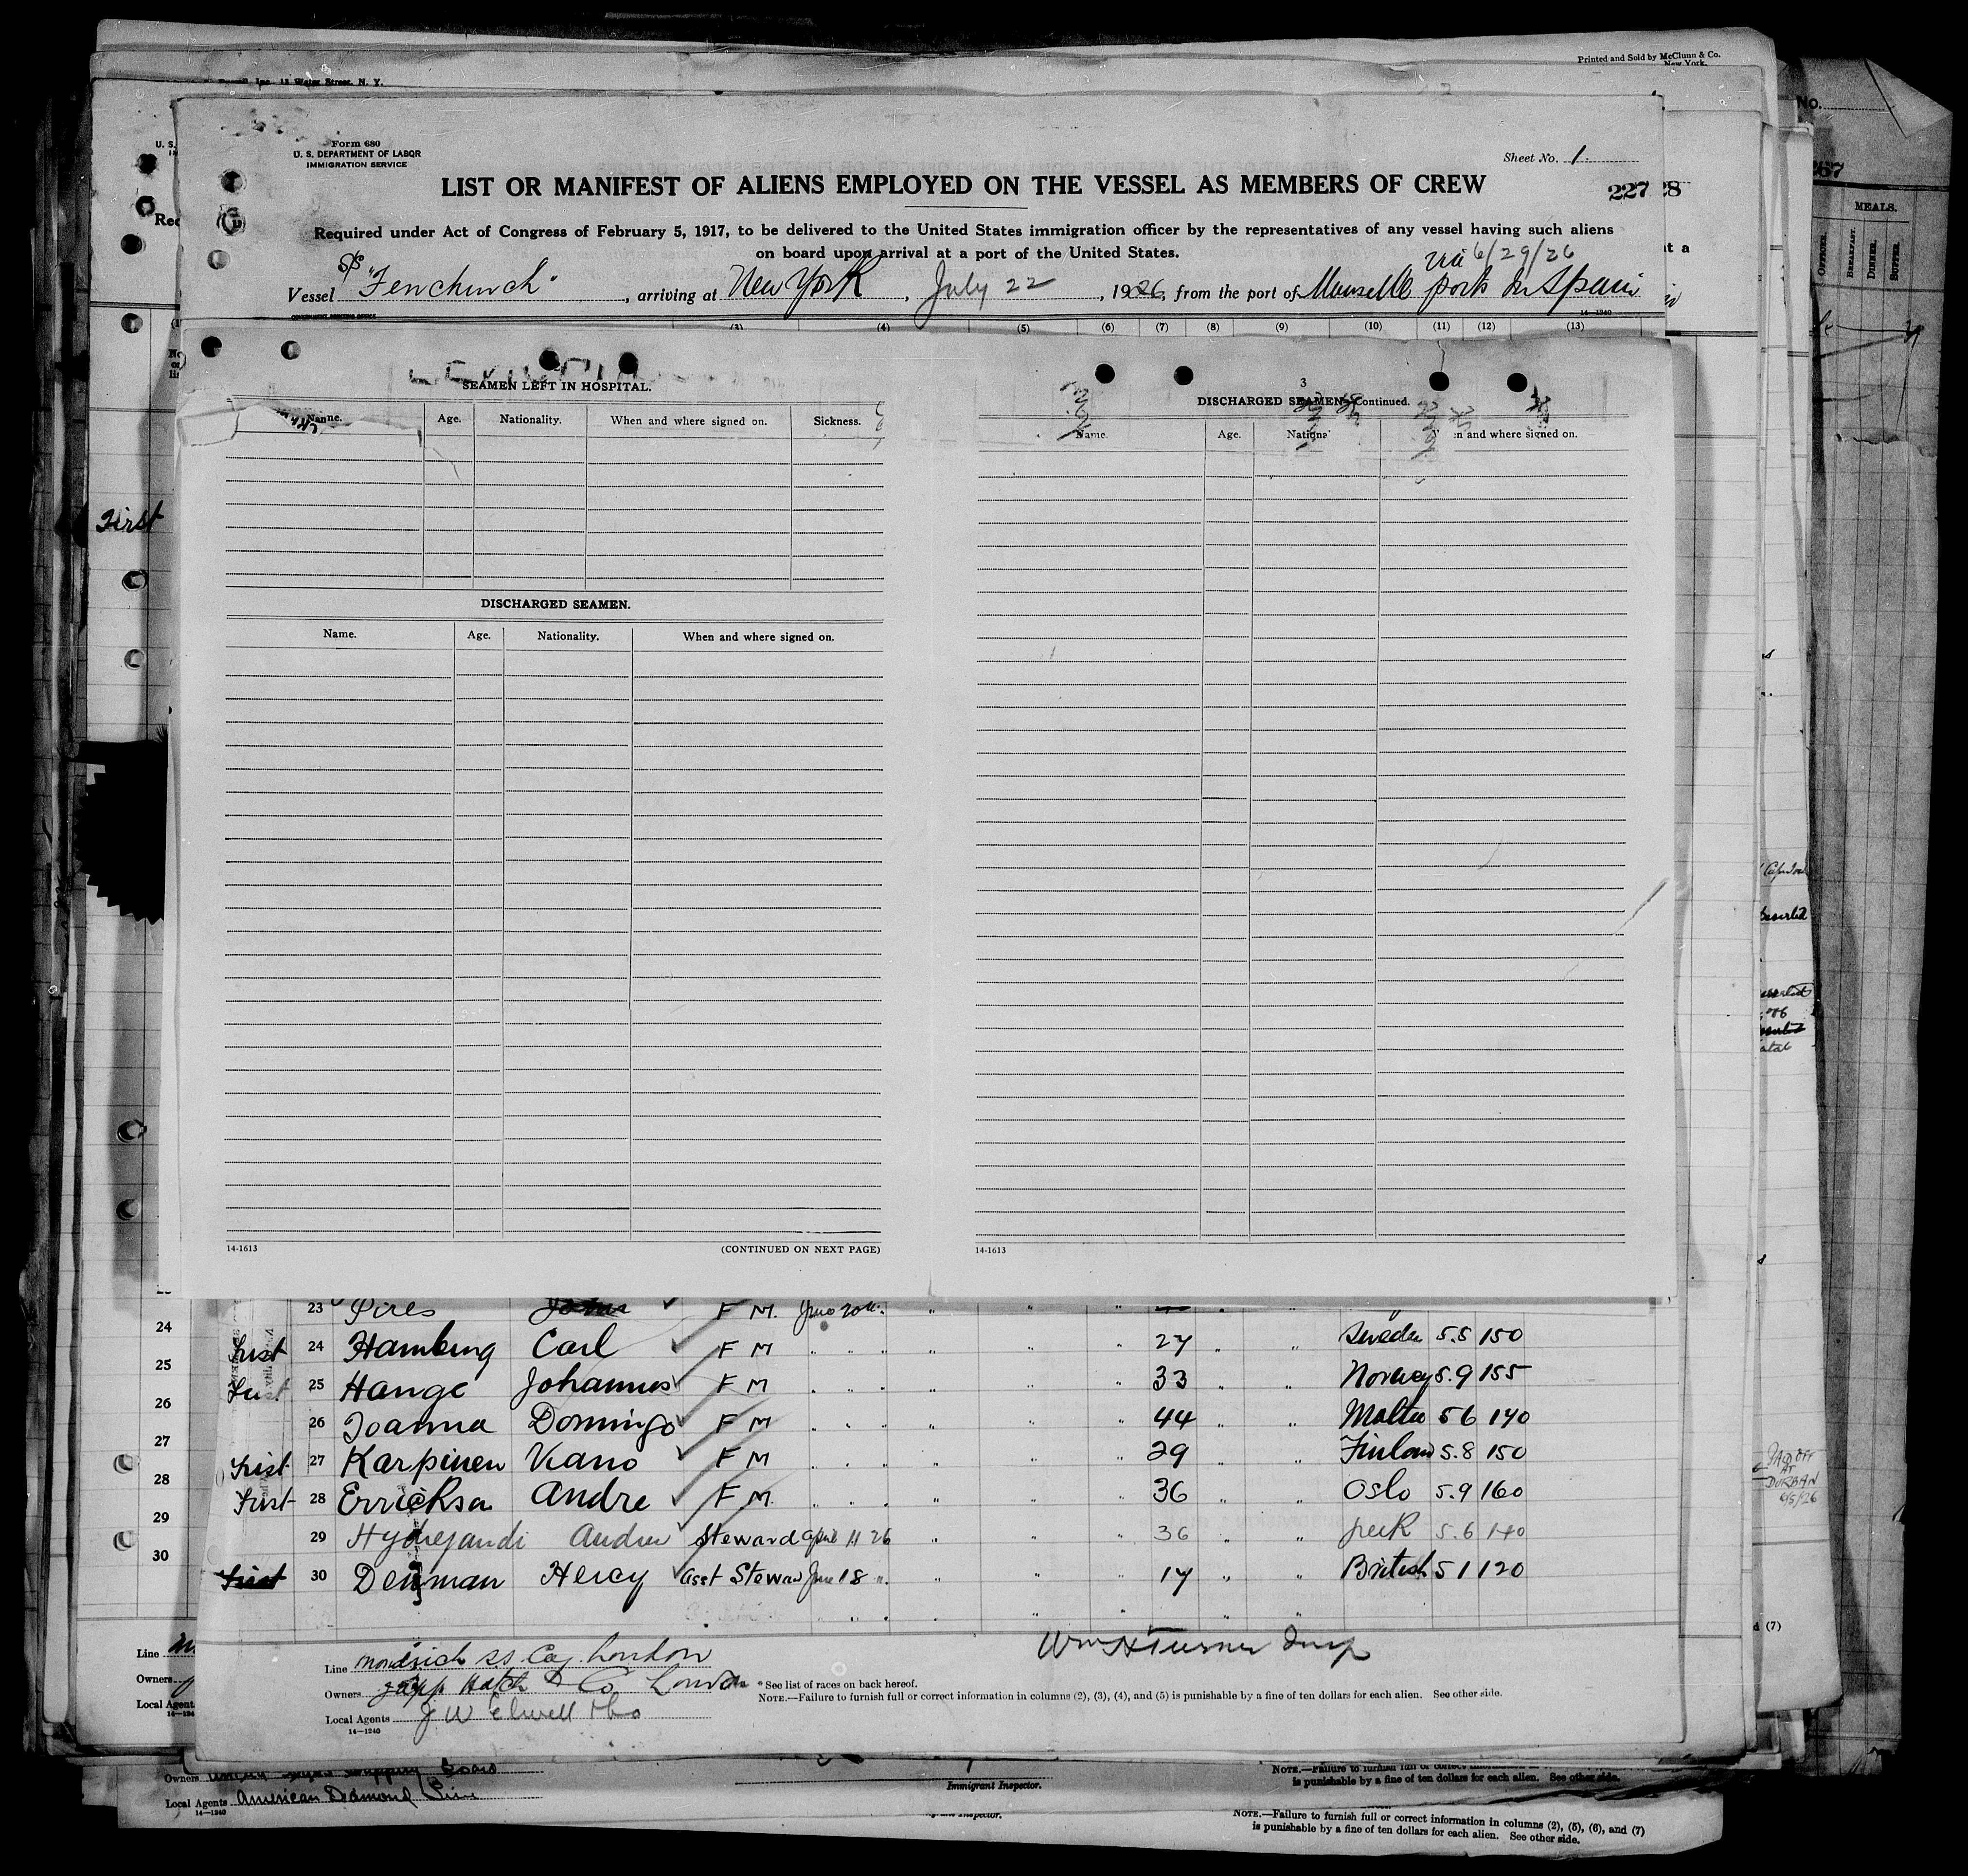 Printed and Sold by McClunn & Co.
New York.
Inc. 13 Water Street, N. Y.
No.
267
MEALS.
OFFICER.
BREAKFAST.
DINNER.
SUPPER.
Form 680
U. S. DEPARTMENT OF LABOR
IMMIGRATION SERVICE
Sheet No. 1
LIST OR MANIFEST OF ALIENS EMPLOYED ON THE VESSEL AS MEMBERS OF CREW
227
28
Required under Act of Congress of February 5, 1917, to be delivered to the United States immigration officer by the representatives of any vessel having such aliens
on board upon arrival at a port of the United States.
via 6/29/26
Vessel S/S "Fenchurch", arriving at New York, July 22, 1926, from the port of Marseille port du Spain
GOVERNMENT PRINTING OFFICE
14—1240
(3) (4) (5) (6) (7) (8) (9) (10) (11) (12) (13)
SEAMEN LEFT IN HOSPITAL.
Name. Age. Nationality. When and where signed on. Sickness.
DISCHARGED SEAMEN.
Name. Age. Nationality. When and where signed on.
14-1613
(CONTINUED ON NEXT PAGE)
3
DISCHARGED SEAMEN—Continued.
Name. Age. Nationa en and where signed on.
14-1613
First
23 Pires John F M. June 20th
First 24 Hamburg Carl F M 27 Sweden 5.5 150
First 25 Hange Johannus F M 33 Norway 5.9 155
26 Joanna Domingo F M 44 Malta 5 6 140
First 27 Karpinen Vano F M 29 Finland 5.8 150
First 28 Erricksa Andre F M. 36 Oslo 5.9 160
29 Andru Steward April 11 26 36 5.6 140
First 30 Denman Hercy Asst Steward June 18 17 British 5 1 120
24
25
26
27
28
29
30
PAID OFF
AT
DURBAN
Wm H Turner Insp
Line SS Co. London
Owners Hatch & Co London
Local Agents J W Elwell & Co
14—1240
* See list of races on back hereof.
NOTE.—Failure to furnish full or correct information in columns (2), (3), (4), and (5) is punishable by a fine of ten dollars for each alien. See other side.
Line
Owners
Local Agents
d (7)
Owners Shipping Board
Local Agents American Diamond Line
14—1240
Immigrant Inspector.
NOTE.—Failure to furnish full or correct
is punishable by a fine of ten dollars for each alien. See other side.
NOTE.—Failure to furnish full or correct information in columns (2), (5), (6), and (7)
is punishable by a fine of ten dollars for each alien. See other side.